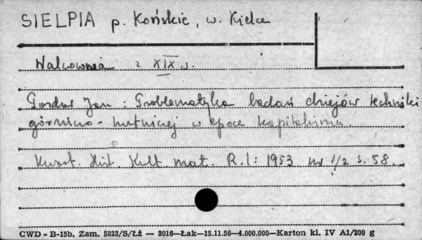 SIELPIA p. Końskie, w. Kielce
Walcownia z XIX w.
Gordur Jan : Problematyka badań dziejów techniki
górniczo - hutniczej w epoce kapitalizmu.
Kwart. Hist. Kult. mat. R. I: 1953 nr 1/2 s. 58.
CWD - B-15b. Zam. 5823/S/Łż — 3016—Łak—15.11.56—4.000.000—Karton kl. IV A1/200 g